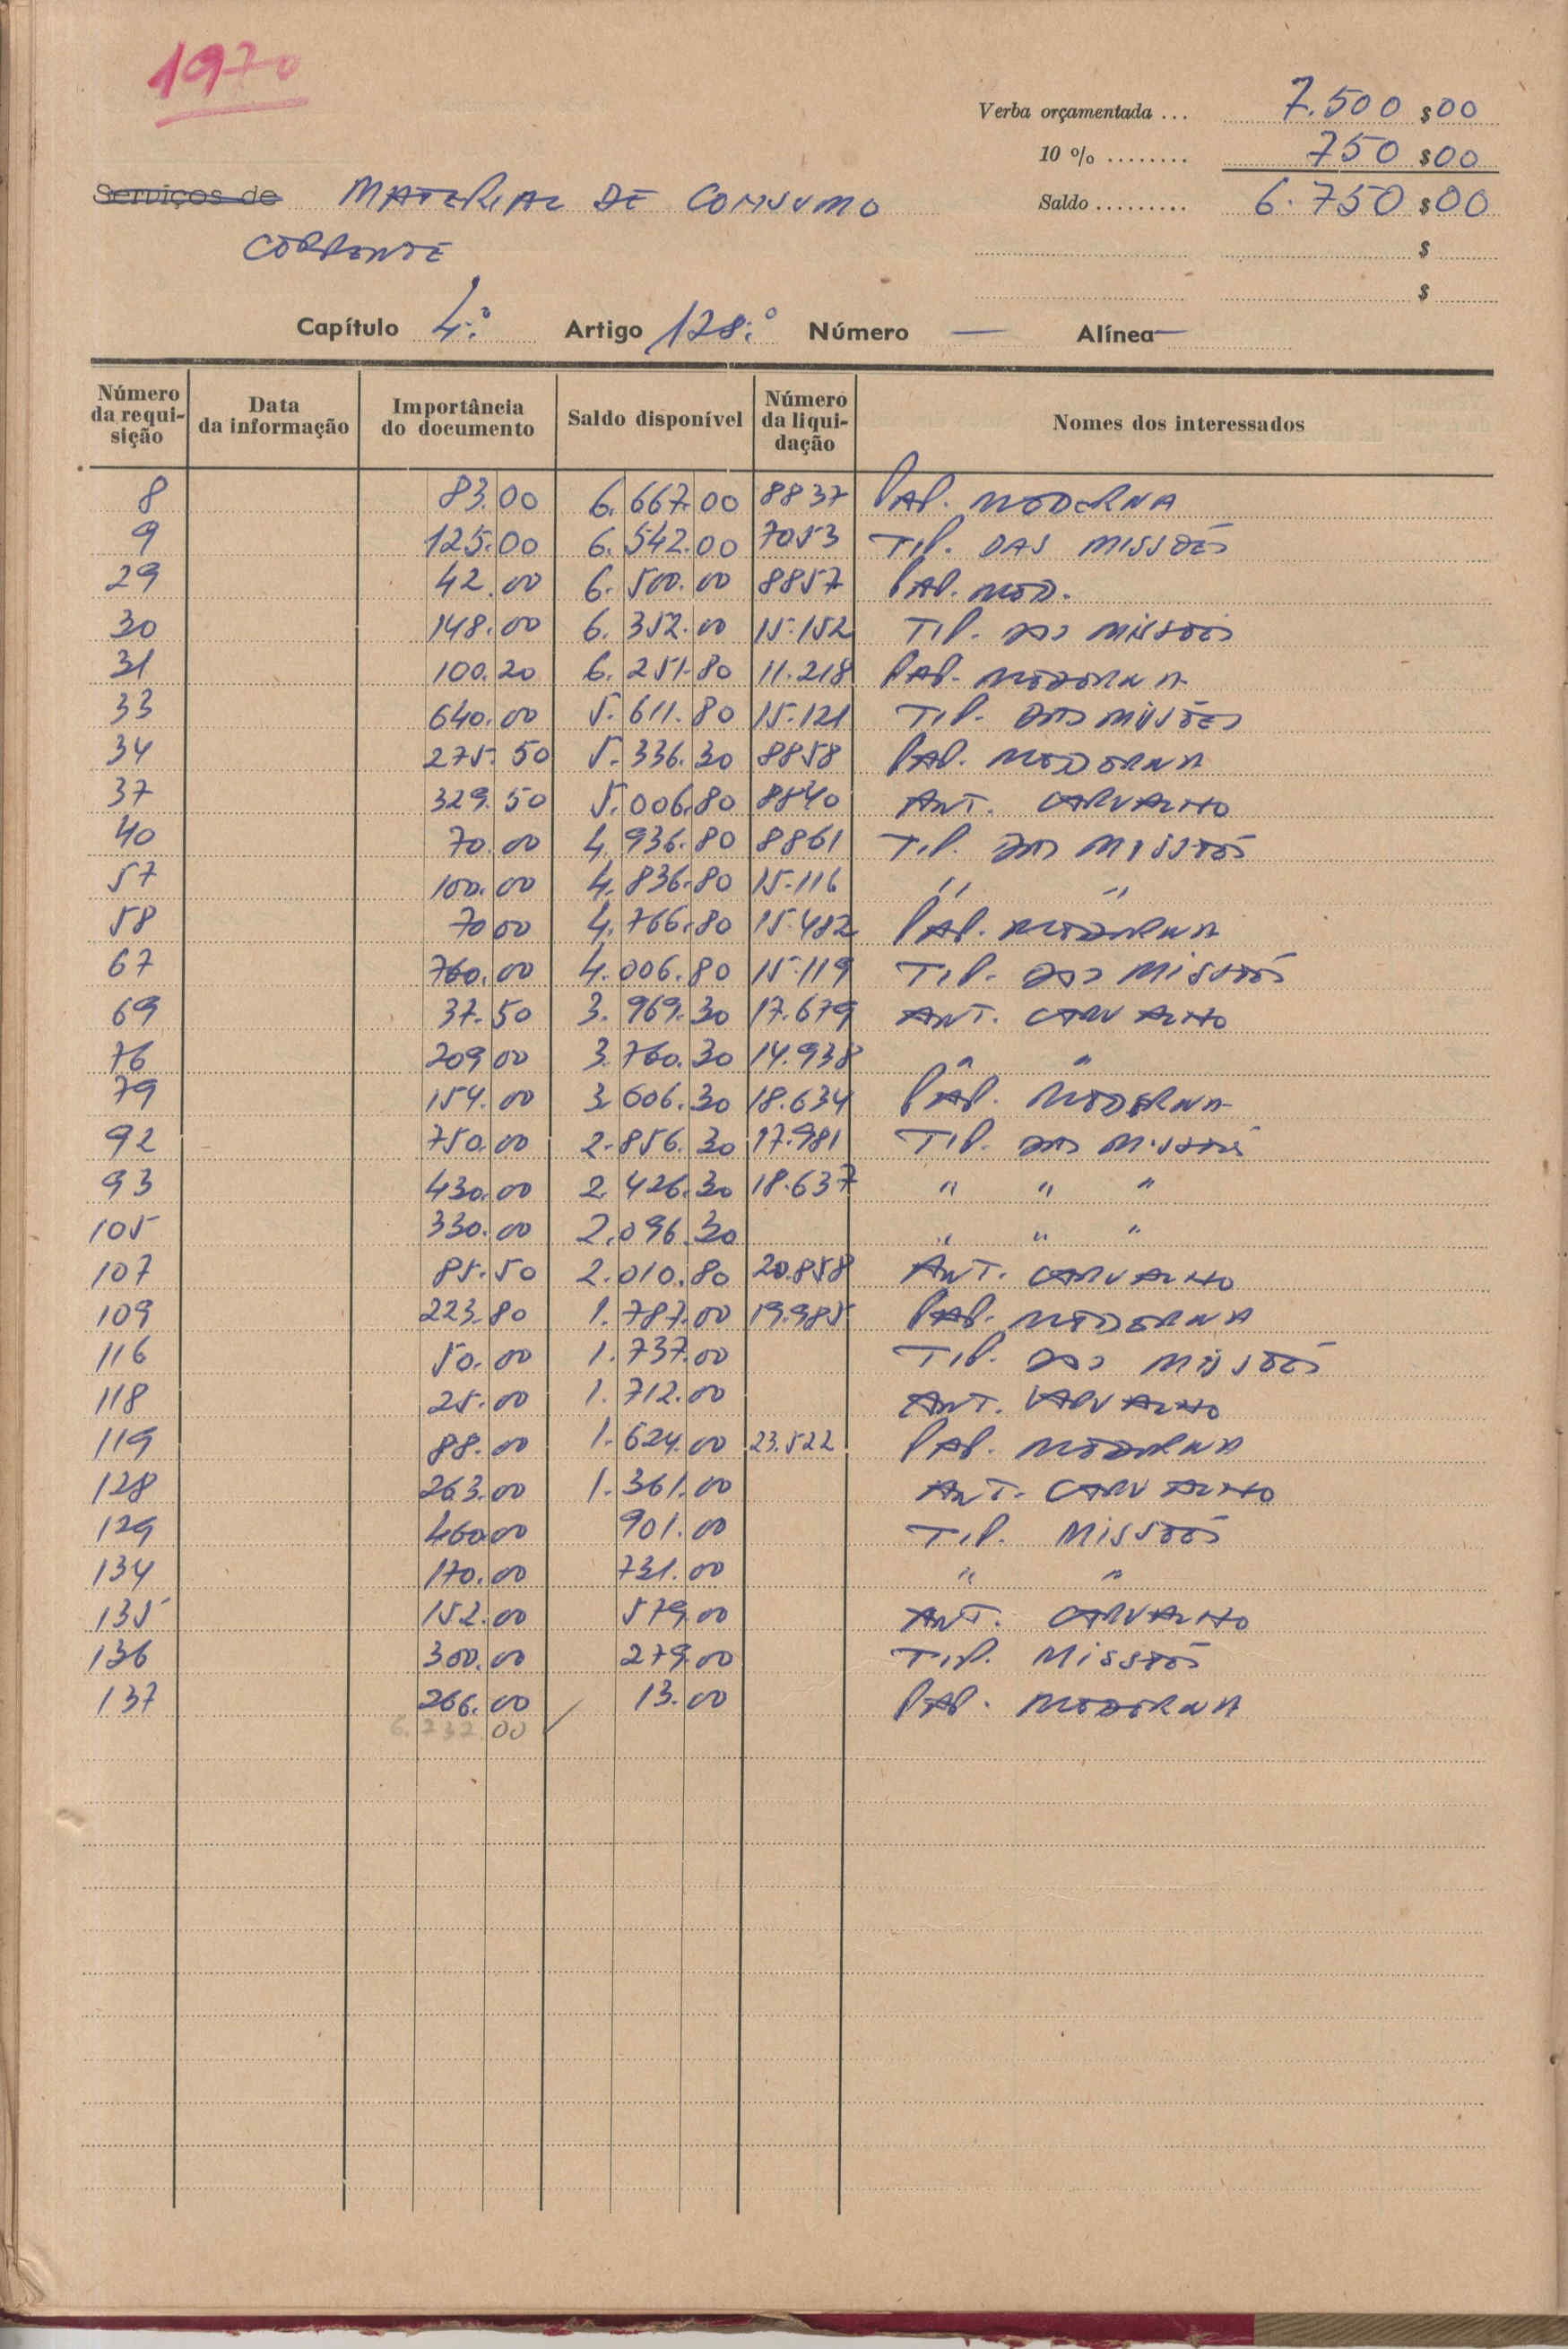 1970
Verba orçamentada ... 7.500 $00
10 % ........ 750 $00
Serviços de MATERIAL DE CONSUMO Saldo ......... 6.750 $00
CORRENTE $
$
Capítulo 4.º Artigo 128.º Número — Alínea —
Número da requisição Data da informação Importância do documento Saldo disponível Número da liquidação Nomes dos interessados
8 83.00 6.667.00 8837 PAP. MODERNA
9 125.00 6.542.00 7053 TIP. DAS MISSÕES
29 42.00 6.500.00 8857 PAP. MOD.
30 148.00 6.352.00 15.152 TIP. DAS MISSÕES
31 100.20 6.251.80 11.218 PAP. MODERNA
33 640.00 5.611.80 15.121 TIP. DAS MISSÕES
34 275.50 5.336.30 8858 PAP. MODERNA
37 329.50 5.006.80 8840 ANT. CARVALHO
40 70.00 4.936.80 8861 TIP. DAS MISSÕES
57 100.00 4.836.80 15.116 " "
58 70 00 4.766.80 15.482 PAP. MODERNA
67 760.00 4.006.80 15.119 TIP. DAS MISSÕES
69 37.50 3.969.30 17.679 ANT. CARVALHO
76 209 00 3.760.30 14.938 " "
79 154.00 3.606.30 18.634 PAP. MODERNA
92 750.00 2.856.30 17.981 TIP. DAS MISSÕES
93 430.00 2.426.30 18.637 " " "
105 330.00 2.096.30 " " "
107 85.50 2.010.80 20.858 ANT. CARVALHO
109 223.80 1.787.00 19.985 PAP. MODERNA
116 50.00 1.737.00 TIP. DAS MISSÕES
118 25.00 1.712.00 ANT. CARVALHO
119 88.00 1.624.00 23.522 PAP. MODERNA
128 263.00 1.361.00 ANT. CARVALHO
129 460 00 901.00 TIP. MISSÕES
134 170.00 731.00 " "
135 152.00 579.00 ANT. CARVALHO
136 300.00 279.00 TIP. MISSÕES
137 266.00 13.00 PAP. MODERNA
6.232.00